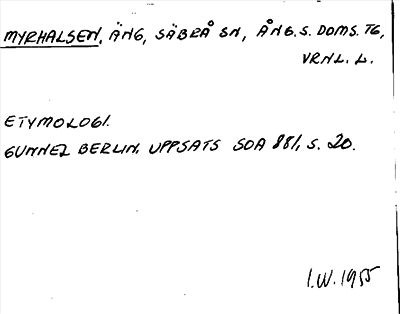 MYRHALSEN, ÄNG, SÄBRÅ SN, ÅNG. S. DOMS. TG,
VRNL. L.
ETYMOLOGI.
GUNNEL BERLIN, UPPSATS SOA 881, S. 20.
I.W. 1955